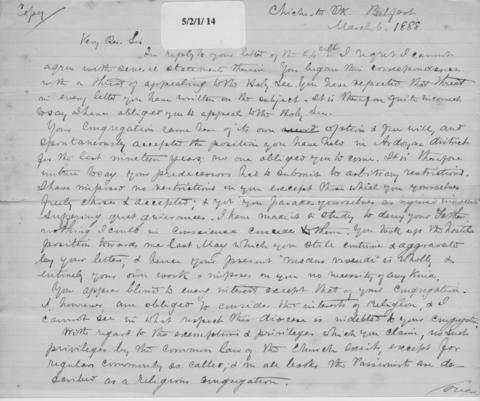 Copy
5/2/1/14
Chichester Pk Belfast
March 6, 1888
Very Rev. Sir
In reply to your letter of the I regret I cannot
agree with several statement therein. You began this correspondence
with a threat of appealing to the Holy See. You have repeated that threat
in every letter you have written on the subject. It is therefore quite incorrect
to say I have obliged you to appeal to the Holy See.
Your Congregation came here of its own option & free will, and
spontaneously accepted the position you have held in Ardoyne district
for the last nineteen years, no one obliged you to come. It is therefore
to say your predecessors had to submit to arbitrary restrictions.
I have imposed no restrictions on you except those which you yourselves
freely chose & accepted; & yet you parade yourselves as
suffering great grievances. I have made it a study to deny your Fathers
nothing I could in conscience concede to them. You took up the hostile
position towards me last May which you still continue & aggravate
by your letters, & hence your present "modus vivendi" is wholly &
entirely your own work & imposes on you no necessity of any kind.
You appear blind to every interest except that of your Congregation.
I, however, am obliged to consider the interests of religion, & I
cannot see in what respect this diocese is indebted to your congregation.
With regard to the exemptions & privileges which you claim, no such
privileges by the common law of the Church exist, except for
regulars commonly so called, & in all books the Passionists are de-
scribed as a religious congregation.